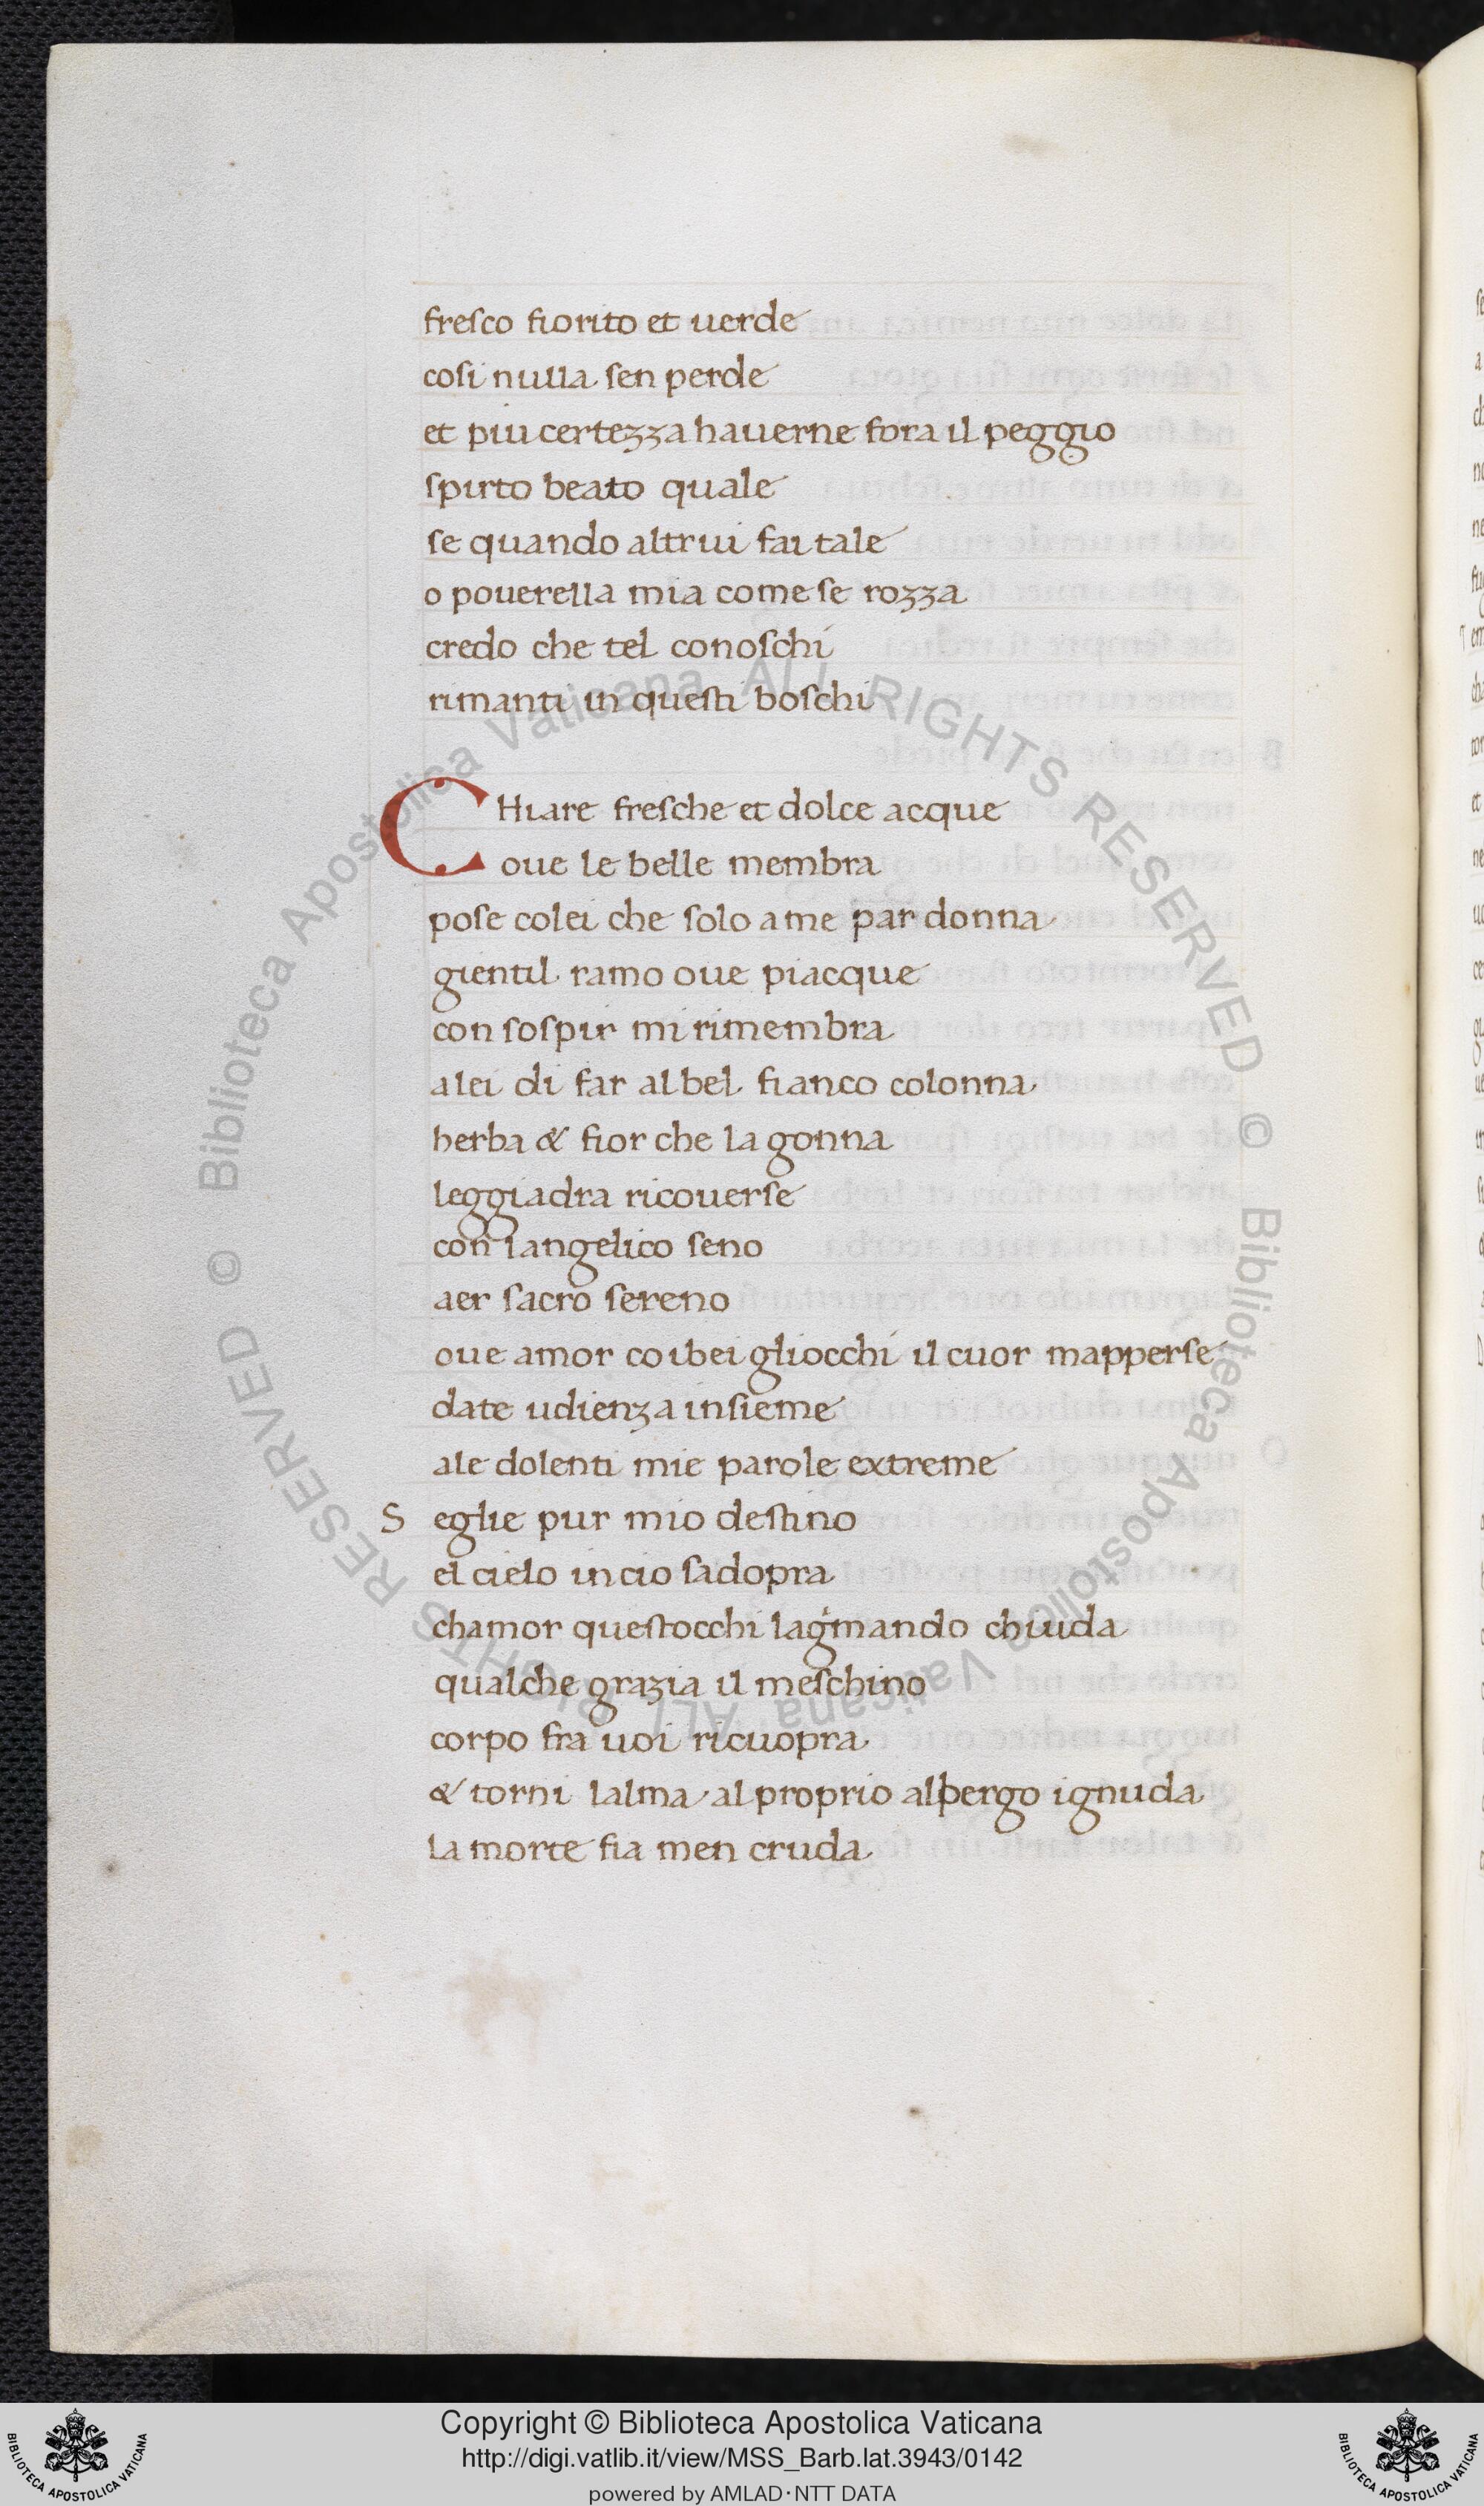 fresco fiorito et uerde
cosi nulla sen perde
et piu certezza hauerne fora il peggio
spirto beato quale
se quando altrui fai tale
o pouerella mia come se rozza
credo che tel conoschi
rimanti in questi boschi
CHiare fresche et dolce acque
oue le belle membra
pose colei che solo a me par donna
gientil ramo oue piacque
con sospir mi rimembra
a lei di far al bel fianco colonna
herba & fior che la gonna
leggiadra ricouerse
con langelico seno
aer sacro sereno
oue amor co ibei gliocchi il cuor mapperse
date udienza insieme
ale dolenti mie parole extreme
S eglie pur mio destino
el cielo in cio sadopra
chamor questocchi lagmando chiuda
qualche grazia il meschino
corpo fra uoi ricuopra
& torni lalma al proprio albergo ignuda
la morte fia men cruda
© Biblioteca Apostolica Vaticana ALL RIGHTS RESERVED
© Biblioteca Apostolica Vaticana ALL RIGHTS RESERVED
BIBLIOTECA APOSTOLICA VATICANA
Copyright © Biblioteca Apostolica Vaticana
http://digi.vatlib.it/view/MSS_Barb.lat.3943/0142
powered by AMLAD·NTT DATA
BIBLIOTECA APOSTOLICA VATICANA